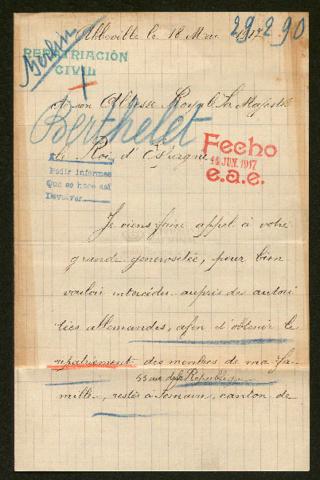 Abbeville le 18 Mai 1917
29.290
Berlin
REPATRIACIÓN
CIVIL
A son Altesse Royale Sa Majesté
Berthelet
le Roi d'Espagne
Fecho
14 JUN. 1917
e.a.e.
Pedir informes
Que se hace así
Devolver
Je viens faire appel à votre
grande générosité, pour bien
vouloir intercéder auprès des autori
tées allemandes, afin d'obtenir le
repatriement des membres de ma fa-
55 rue de la République
mille, restés à Somain, canton de